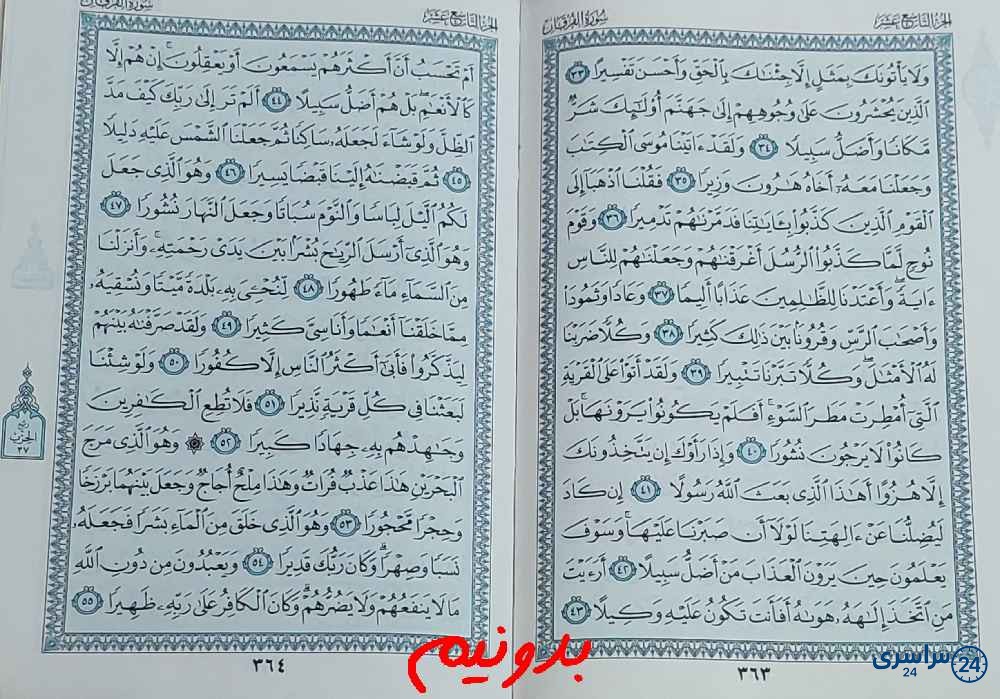 الجزء التاسع عشر
سورة الفرقان
وَلَا يَأْتُونَكَ بِمَثَلٍ إِلَّا جِئْنَٰكَ بِٱلْحَقِّ وَأَحْسَنَ تَفْسِيرًا ٣٣
ٱلَّذِينَ يُحْشَرُونَ عَلَىٰ وُجُوهِهِمْ إِلَىٰ جَهَنَّمَ أُو۟لَٰٓئِكَ شَرٌّ
مَّكَانًا وَأَضَلُّ سَبِيلًا ٣٤ وَلَقَدْ ءَاتَيْنَا مُوسَى ٱلْكِتَٰبَ
وَجَعَلْنَا مَعَهُۥٓ أَخَاهُ هَٰرُونَ وَزِيرًا ٣٥ فَقُلْنَا ٱذْهَبَآ إِلَى
ٱلْقَوْمِ ٱلَّذِينَ كَذَّبُوا۟ بِـَٔايَٰتِنَا فَدَمَّرْنَٰهُمْ تَدْمِيرًا ٣٦ وَقَوْمَ
نُوحٍ لَّمَّا كَذَّبُوا۟ ٱلرُّسُلَ أَغْرَقْنَٰهُمْ وَجَعَلْنَٰهُمْ لِلنَّاسِ
ءَايَةً وَأَعْتَدْنَا لِلظَّٰلِمِينَ عَذَابًا أَلِيمًا ٣٧ وَعَادًا وَثَمُودَا۟
وَأَصْحَٰبَ ٱلرَّسِّ وَقُرُونًۢا بَيْنَ ذَٰلِكَ كَثِيرًا ٣٨ وَكُلًّا ضَرَبْنَا
لَهُ ٱلْأَمْثَٰلَ وَكُلًّا تَبَّرْنَا تَتْبِيرًا ٣٩ وَلَقَدْ أَتَوْا۟ عَلَى ٱلْقَرْيَةِ
ٱلَّتِىٓ أُمْطِرَتْ مَطَرَ ٱلسَّوْءِ أَفَلَمْ يَكُونُوا۟ يَرَوْنَهَا بَلْ
كَانُوا۟ لَا يَرْجُونَ نُشُورًا ٤٠ وَإِذَا رَأَوْكَ إِن يَتَّخِذُونَكَ
إِلَّا هُزُوًا أَهَٰذَا ٱلَّذِى بَعَثَ ٱللَّهُ رَسُولًا ٤١ إِن كَادَ
لَيُضِلُّنَا عَنْ ءَالِهَتِنَا لَوْلَآ أَن صَبَرْنَا عَلَيْهَا وَسَوْفَ
يَعْلَمُونَ حِينَ يَرَوْنَ ٱلْعَذَابَ مَنْ أَضَلُّ سَبِيلًا ٤٢ أَرَءَيْتَ
مَنِ ٱتَّخَذَ إِلَٰهَهُۥ هَوَىٰهُ أَفَأَنتَ تَكُونُ عَلَيْهِ وَكِيلًا ٤٣
٣٦٣
الجزء التاسع عشر
سورة الفرقان
أَمْ تَحْسَبُ أَنَّ أَكْثَرَهُمْ يَسْمَعُونَ أَوْ يَعْقِلُونَ إِنْ هُمْ إِلَّا
كَٱلْأَنْعَٰمِ بَلْ هُمْ أَضَلُّ سَبِيلًا ٤٤ أَلَمْ تَرَ إِلَىٰ رَبِّكَ كَيْفَ مَدَّ
ٱلظِّلَّ وَلَوْ شَآءَ لَجَعَلَهُۥ سَاكِنًا ثُمَّ جَعَلْنَا ٱلشَّمْسَ عَلَيْهِ دَلِيلًا
٤٥ ثُمَّ قَبَضْنَٰهُ إِلَيْنَا قَبْضًا يَسِيرًا ٤٦ وَهُوَ ٱلَّذِى جَعَلَ
لَكُمُ ٱلَّيْلَ لِبَاسًا وَٱلنَّوْمَ سُبَاتًا وَجَعَلَ ٱلنَّهَارَ نُشُورًا ٤٧
وَهُوَ ٱلَّذِىٓ أَرْسَلَ ٱلرِّيَٰحَ بُشْرًۢا بَيْنَ يَدَىْ رَحْمَتِهِۦ وَأَنزَلْنَا
مِنَ ٱلسَّمَآءِ مَآءً طَهُورًا ٤٨ لِّنُحْـِۧىَ بِهِۦ بَلْدَةً مَّيْتًا وَنُسْقِيَهُۥ
مِمَّا خَلَقْنَآ أَنْعَٰمًا وَأَنَاسِىَّ كَثِيرًا ٤٩ وَلَقَدْ صَرَّفْنَٰهُ بَيْنَهُمْ
لِيَذَّكَّرُوا۟ فَأَبَىٰٓ أَكْثَرُ ٱلنَّاسِ إِلَّا كُفُورًا ٥٠ وَلَوْ شِئْنَا
لَبَعَثْنَا فِى كُلِّ قَرْيَةٍ نَّذِيرًا ٥١ فَلَا تُطِعِ ٱلْكَٰفِرِينَ
وَجَٰهِدْهُم بِهِۦ جِهَادًا كَبِيرًا ٥٢ ۞ وَهُوَ ٱلَّذِى مَرَجَ
ٱلْبَحْرَيْنِ هَٰذَا عَذْبٌ فُرَاتٌ وَهَٰذَا مِلْحٌ أُجَاجٌ وَجَعَلَ بَيْنَهُمَا بَرْزَخًا
وَحِجْرًا مَّحْجُورًا ٥٣ وَهُوَ ٱلَّذِى خَلَقَ مِنَ ٱلْمَآءِ بَشَرًا فَجَعَلَهُۥ
نَسَبًا وَصِهْرًا وَكَانَ رَبُّكَ قَدِيرًا ٥٤ وَيَعْبُدُونَ مِن دُونِ ٱللَّهِ
مَا لَا يَنفَعُهُمْ وَلَا يَضُرُّهُمْ وَكَانَ ٱلْكَافِرُ عَلَىٰ رَبِّهِۦ ظَهِيرًا ٥٥
٣٦٤
ربع
الحزب
٣٧
بدونیم
سراسری 24
24